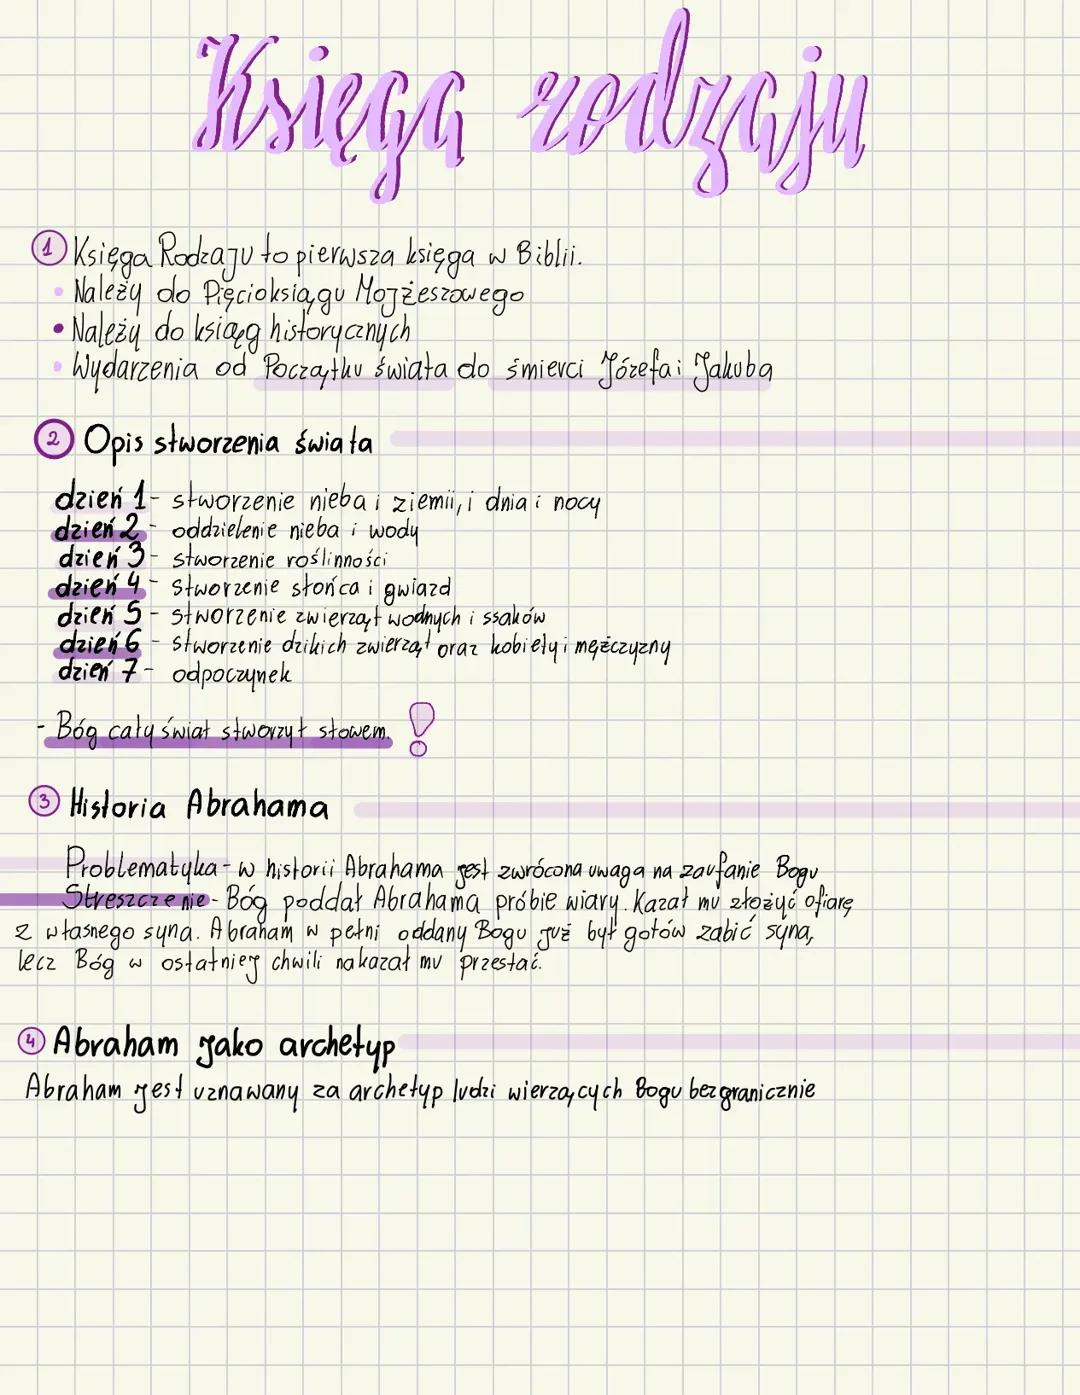 Księga rodzaju
1 Księga Rodzaju to pierwsza księga w Biblii.
• Należy do Pięcioksiągu Mojżeszowego
• Należy do ksiąg historycznych
• Wydarzenia od Początku świata do śmierci Józefa i Jakuba
2 Opis stworzenia świata
dzień 1 - stworzenie nieba i ziemii, i dnia i nocy
dzień 2 - oddzielenie nieba i wody
dzień 3 - stworzenie roślinności
dzień 4 - stworzenie słońca i gwiazd
dzień 5 - stworzenie zwierząt wodnych i ssaków
dzień 6 - stworzenie dzikich zwierząt oraz kobiety i mężczyzny
dzień 7 - odpoczynek
- Bóg cały świat stworzył słowem. !
3 Historia Abrahama
Problematyka - w historii Abrahama jest zwrócona uwaga na zaufanie Bogu
Streszczenie - Bóg poddał Abrahama próbie wiary. Kazał mu złożyć ofiarę
z własnego syna. Abraham w pełni oddany Bogu już był gotów zabić syna,
lecz Bóg w ostatniej chwili nakazał mu przestać.
4 Abraham jako archetyp
Abraham jest uznawany za archetyp ludzi wierzących Bogu bezgranicznie